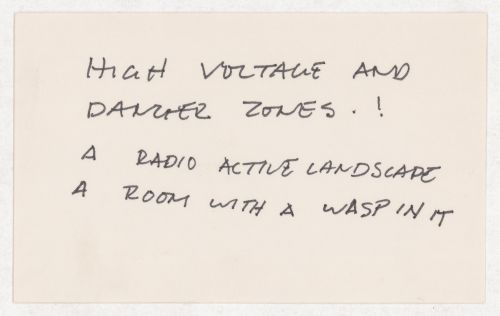 HIGH VOLTAGE AND
DANGER ZONES. !
A RADIO ACTIVE LANDSCAPE
A ROOM WITH A WASP IN IT